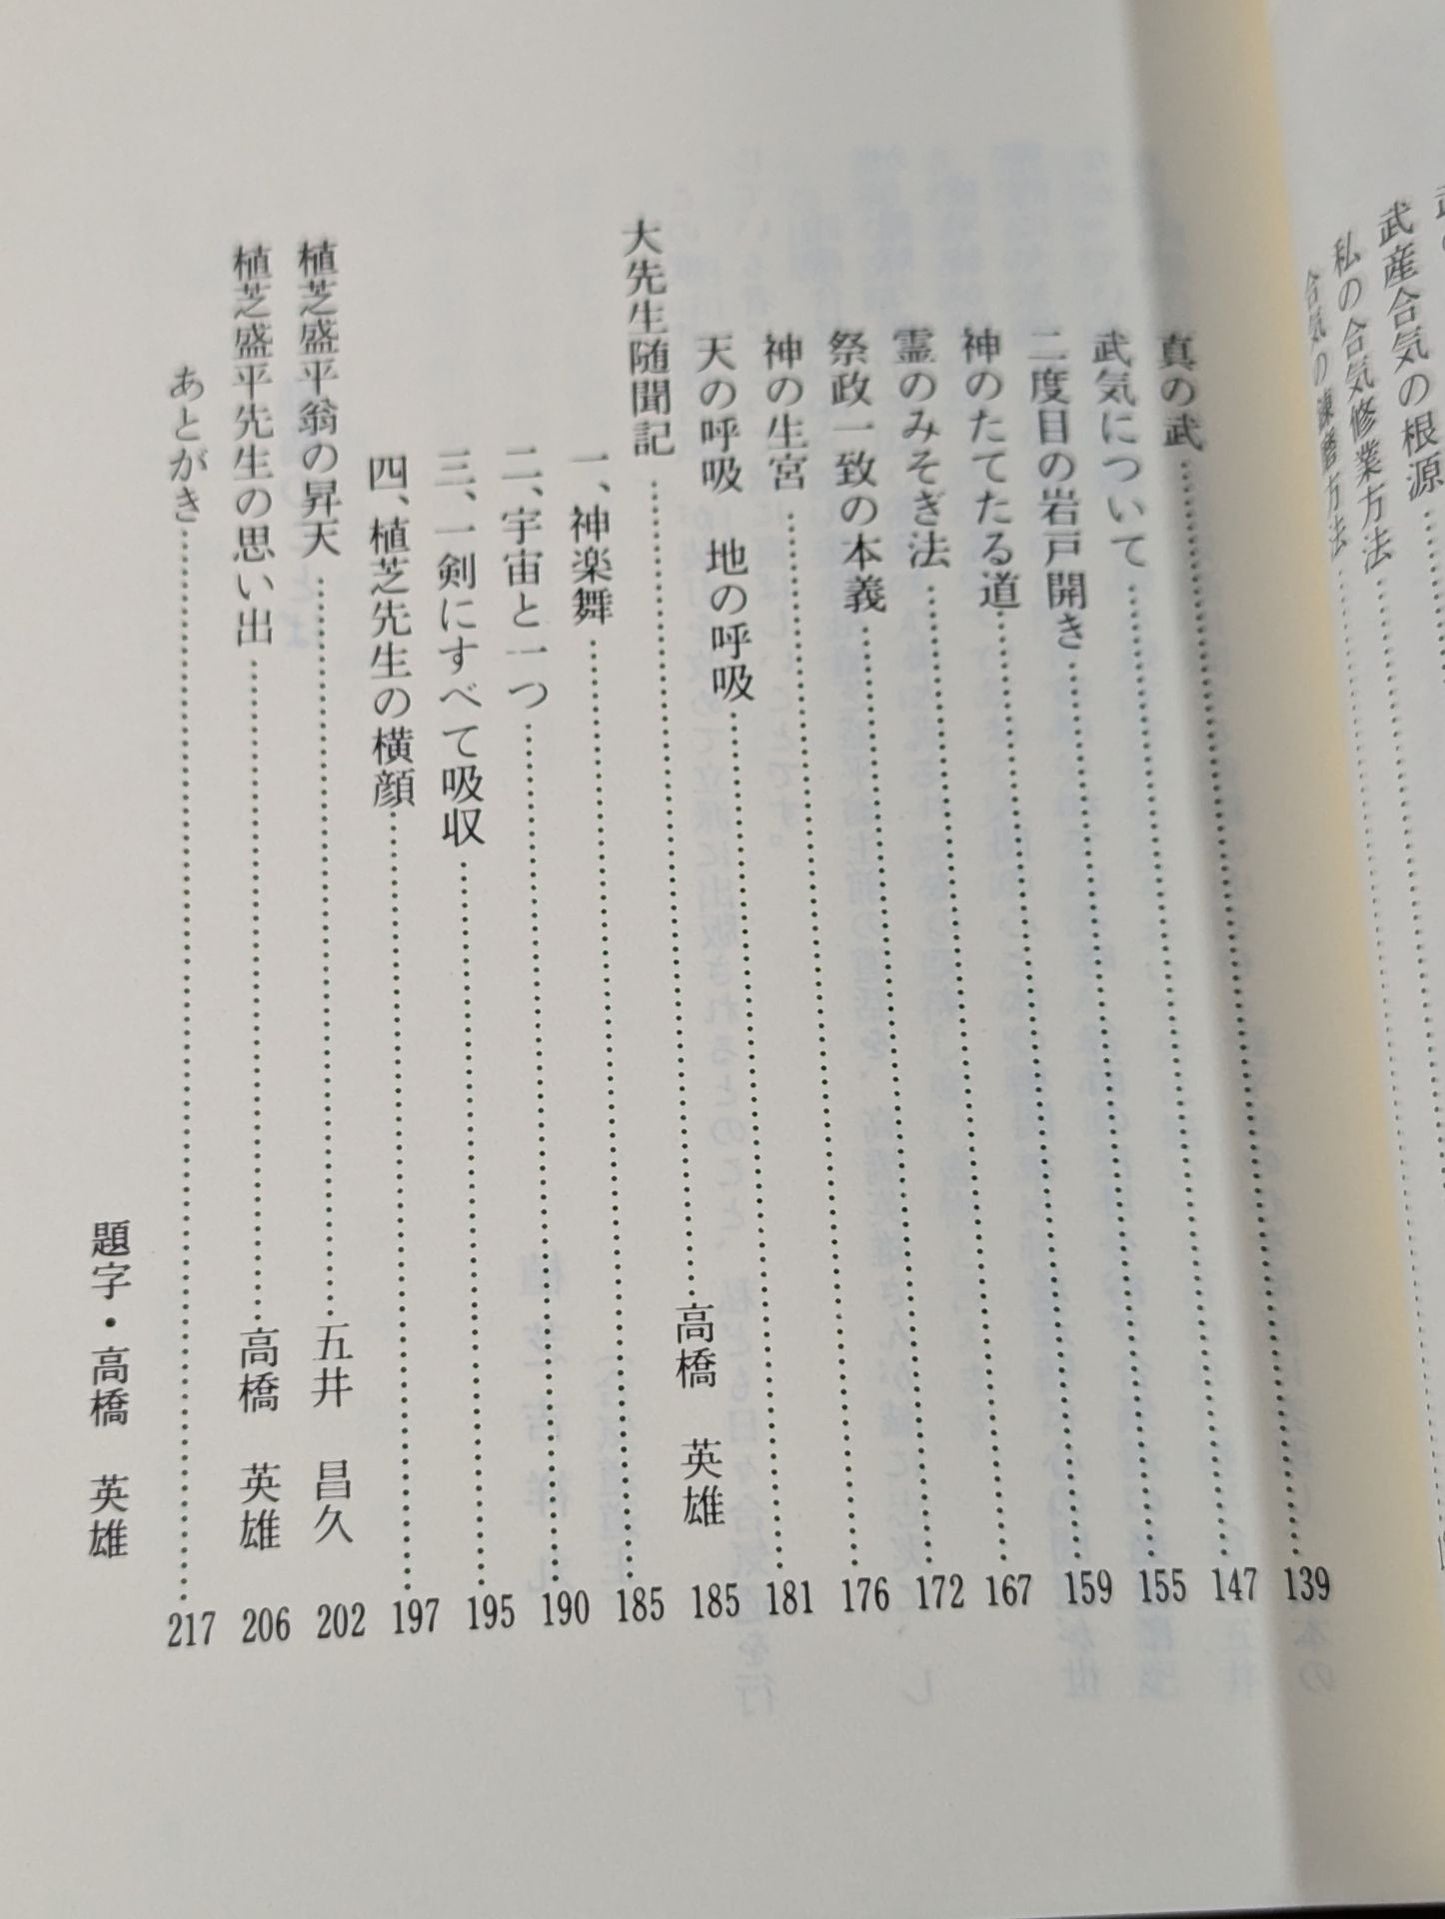 武産合気の根源……
私の合気修業方法……
合気の練磨方法……
真の武……139
武気について……147
二度目の岩戸開き……155
神のたてたる道……159
霊のみそぎ法……167
祭政一致の本義……172
神の生宮……176
天の呼吸 地の呼吸……181
大先生随聞記……高橋 英雄 185
一、神楽舞……185
二、宇宙と一つ……190
三、一剣にすべて吸収……195
四、植芝先生の横顔……197
植芝盛平翁の昇天……五井 昌久 202
植芝盛平先生の思い出……高橋 英雄 206
あとがき……217
題字・高橋 英雄